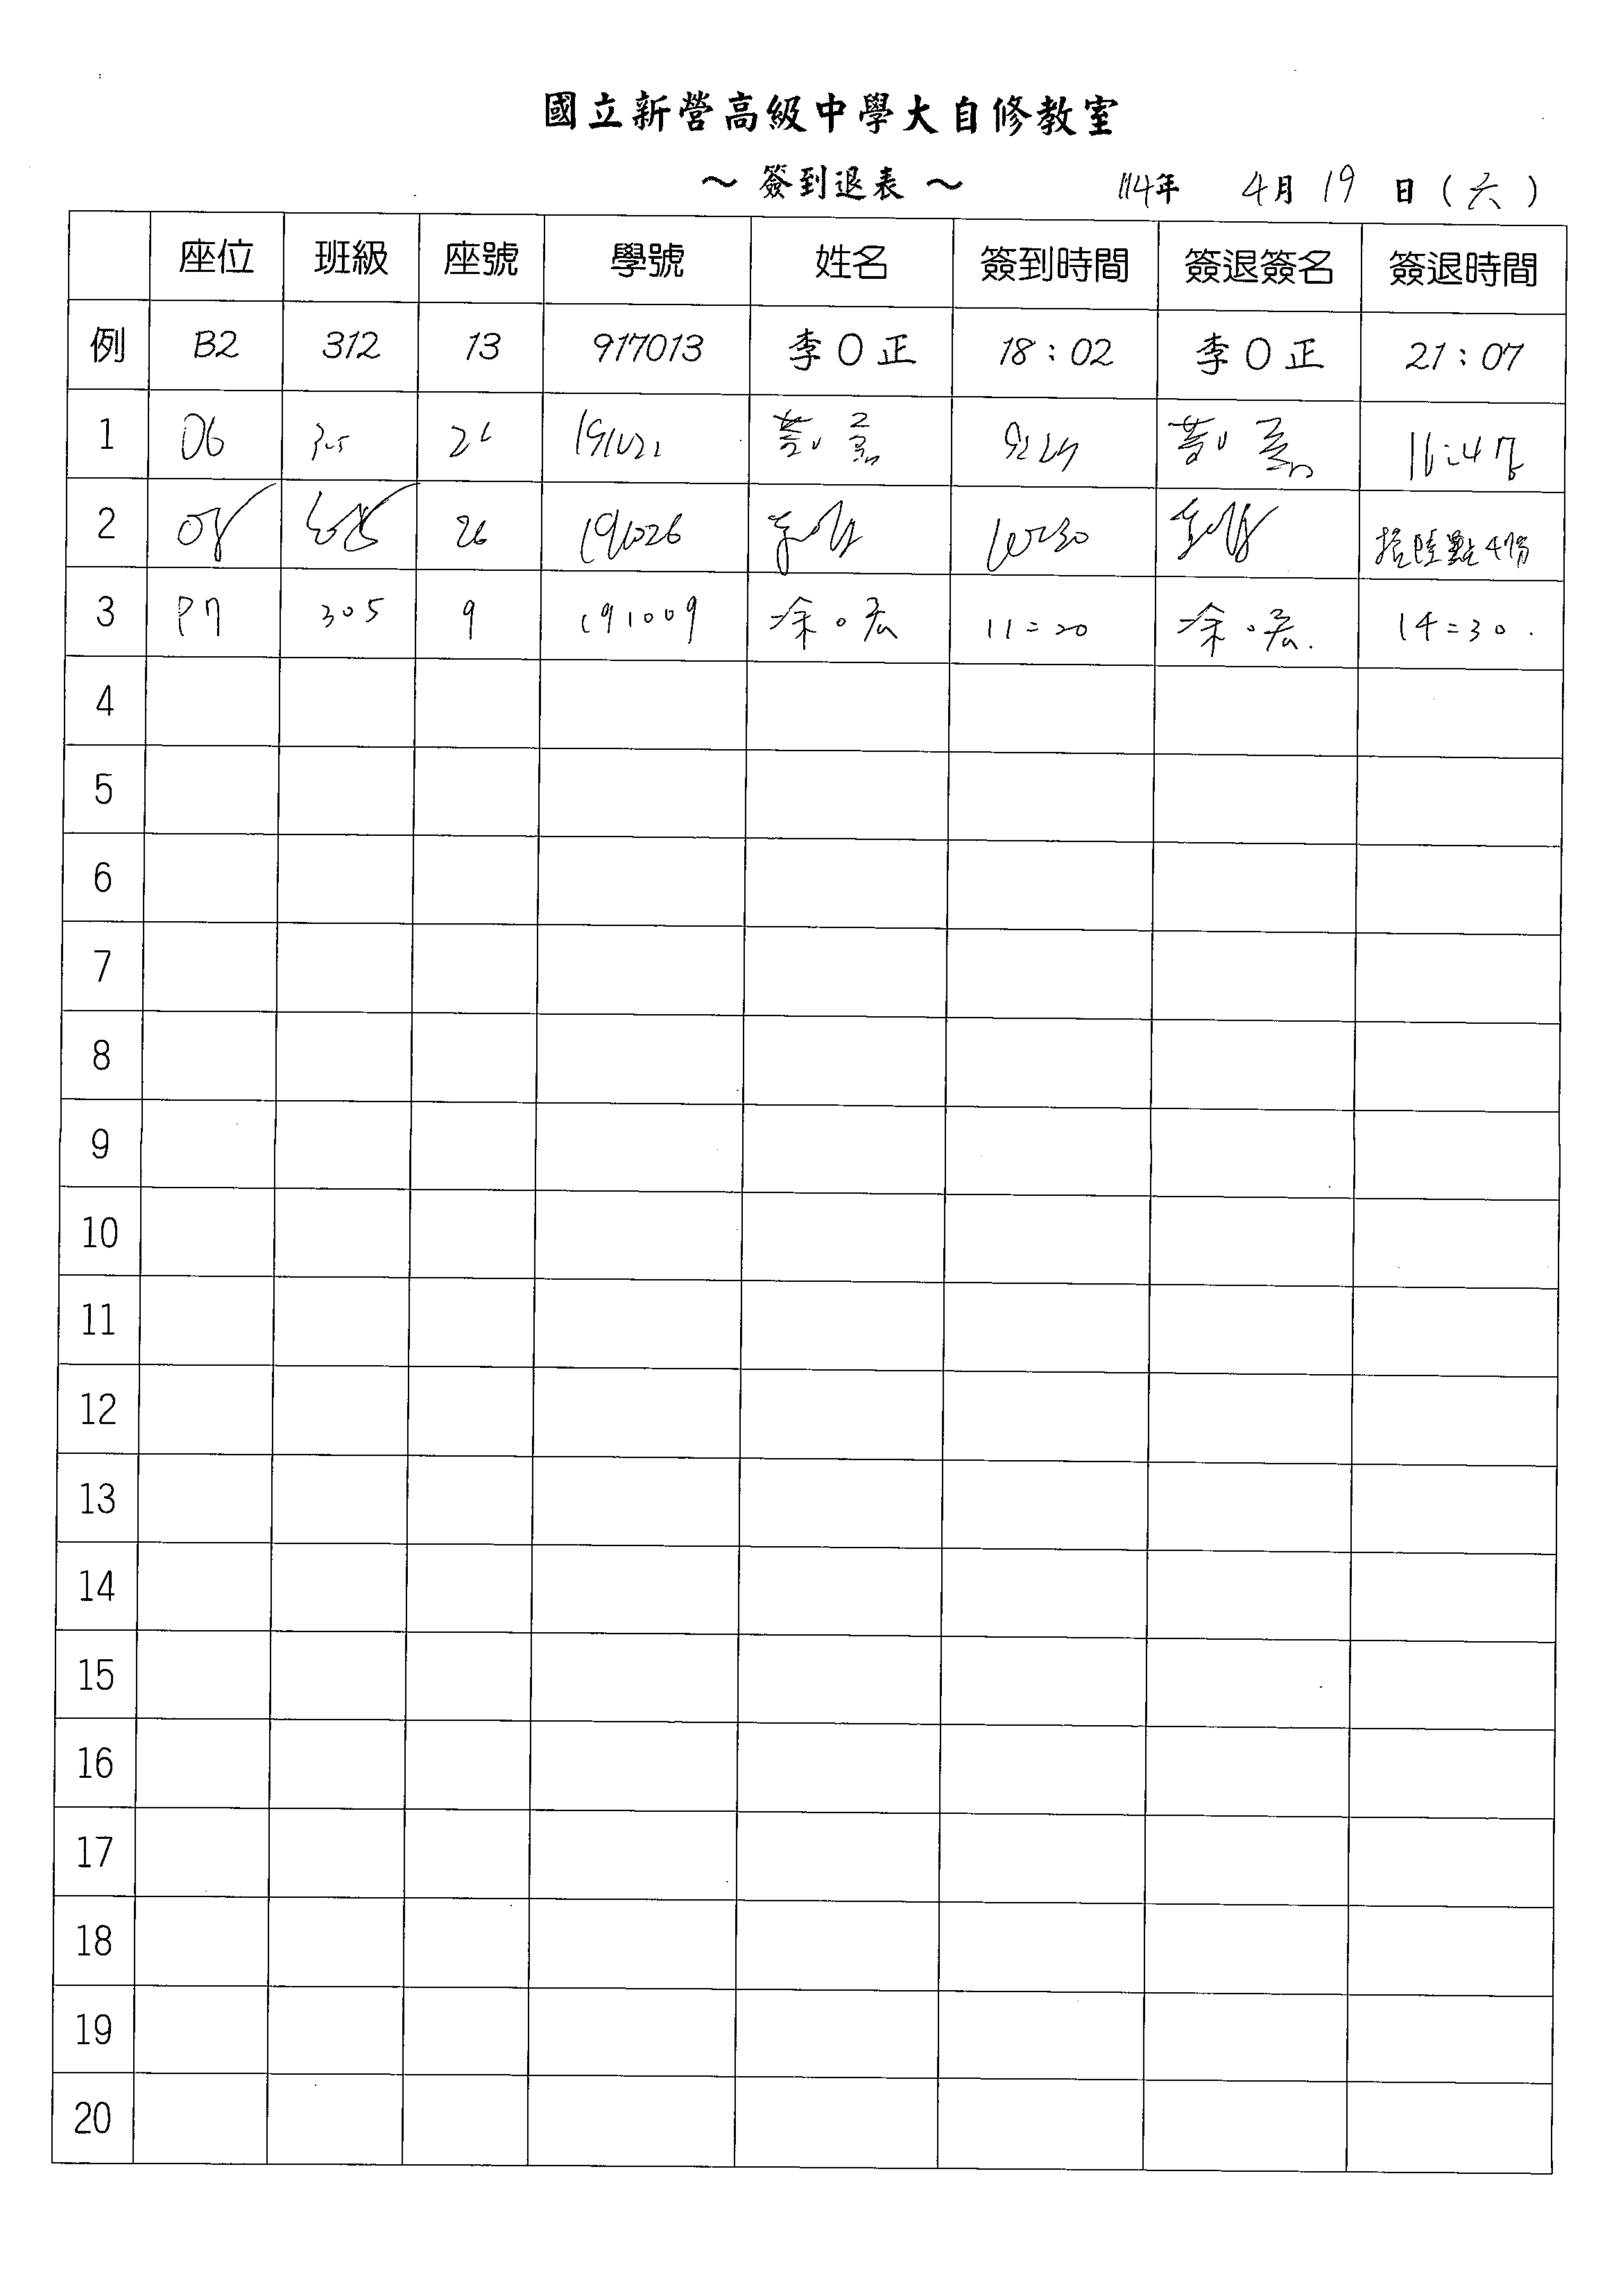 國立新營高級中學大自修教室
～ 簽到退表 ～ 114年 4月 19 日 (六)
座位 班級 座號 學號 姓名 簽到時間 簽退簽名 簽退時間
例 B2 312 13 917013 李O正 18:02 李O正 21:07
1 06
2 08 26 191026 10:30
3 P7 305 9 191009 涂。宏 11:20 涂。宏. 14:30.
4
5
6
7
8
9
10
11
12
13
14
15
16
17
18
19
20